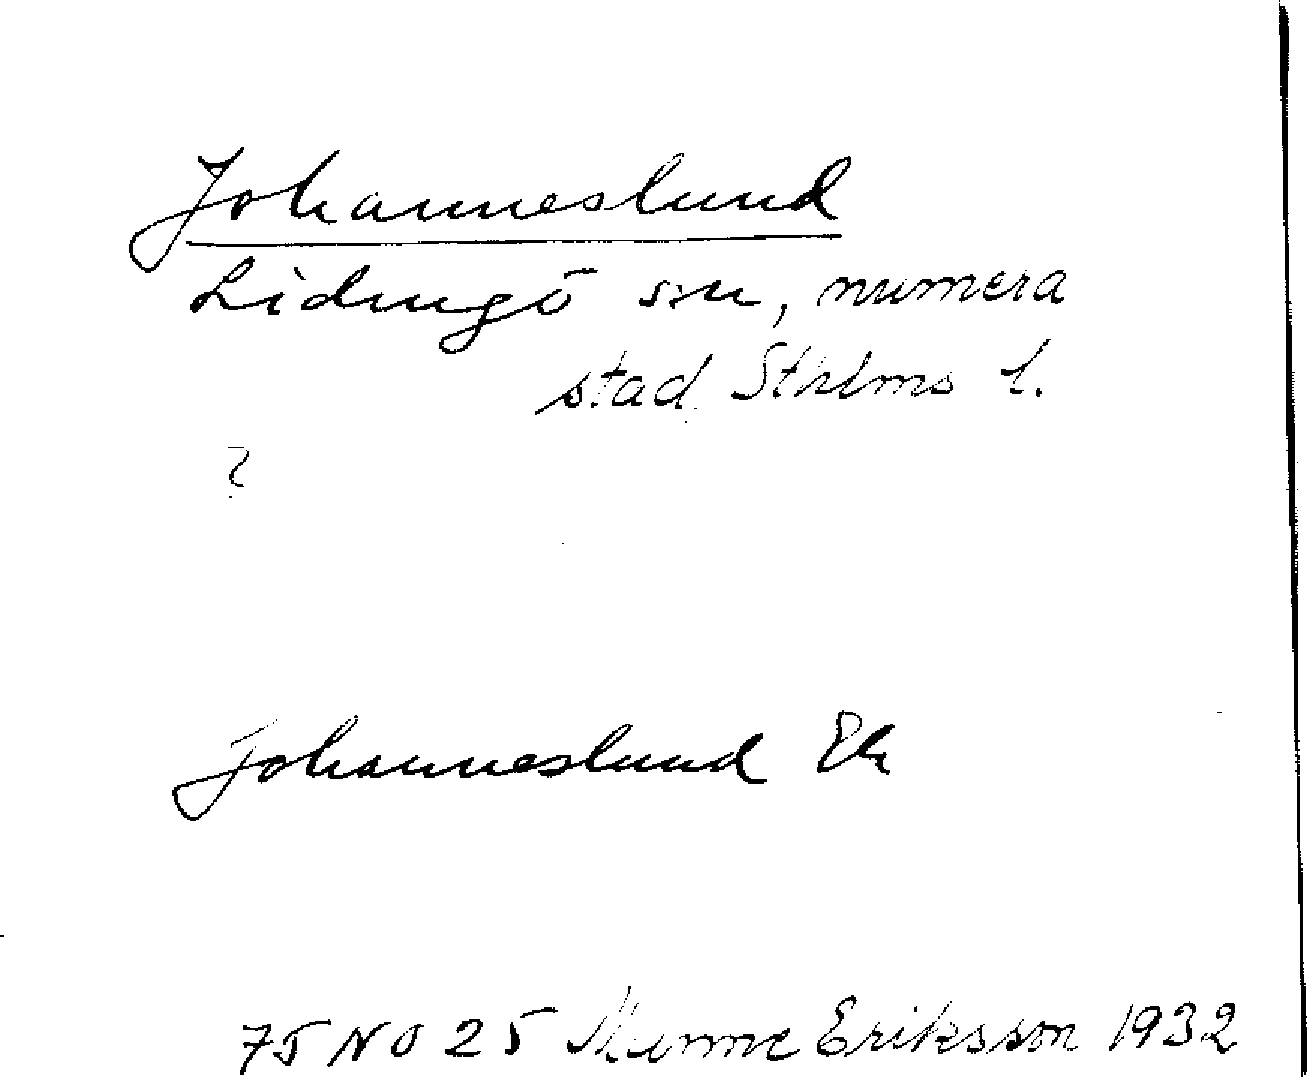 Johanneslund
Lidingö sn, numera
stad Sthlms l.
?
Johanneslund Ek
75 NO 25 Manne Eriksson 1932